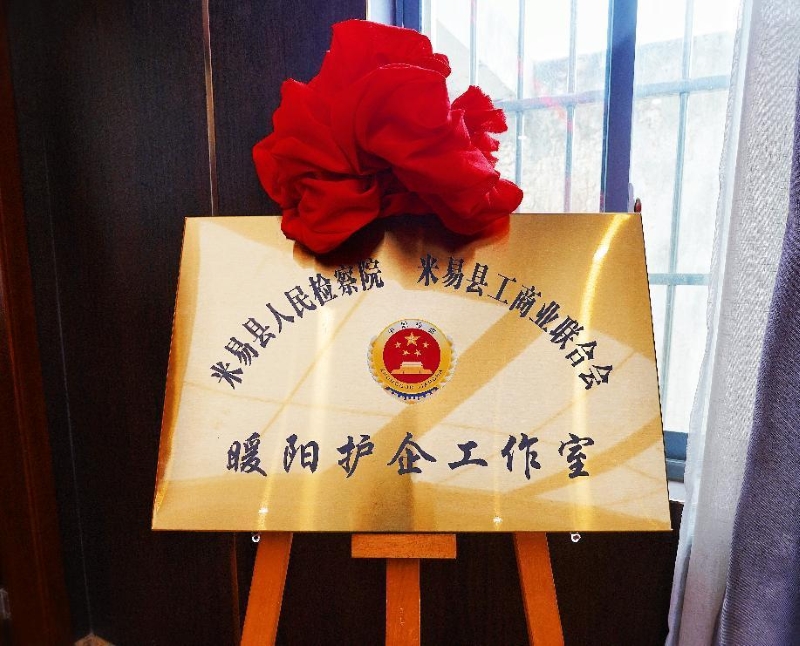 米易县人民检察院 米易县工商业联合会
暖阳护企工作室